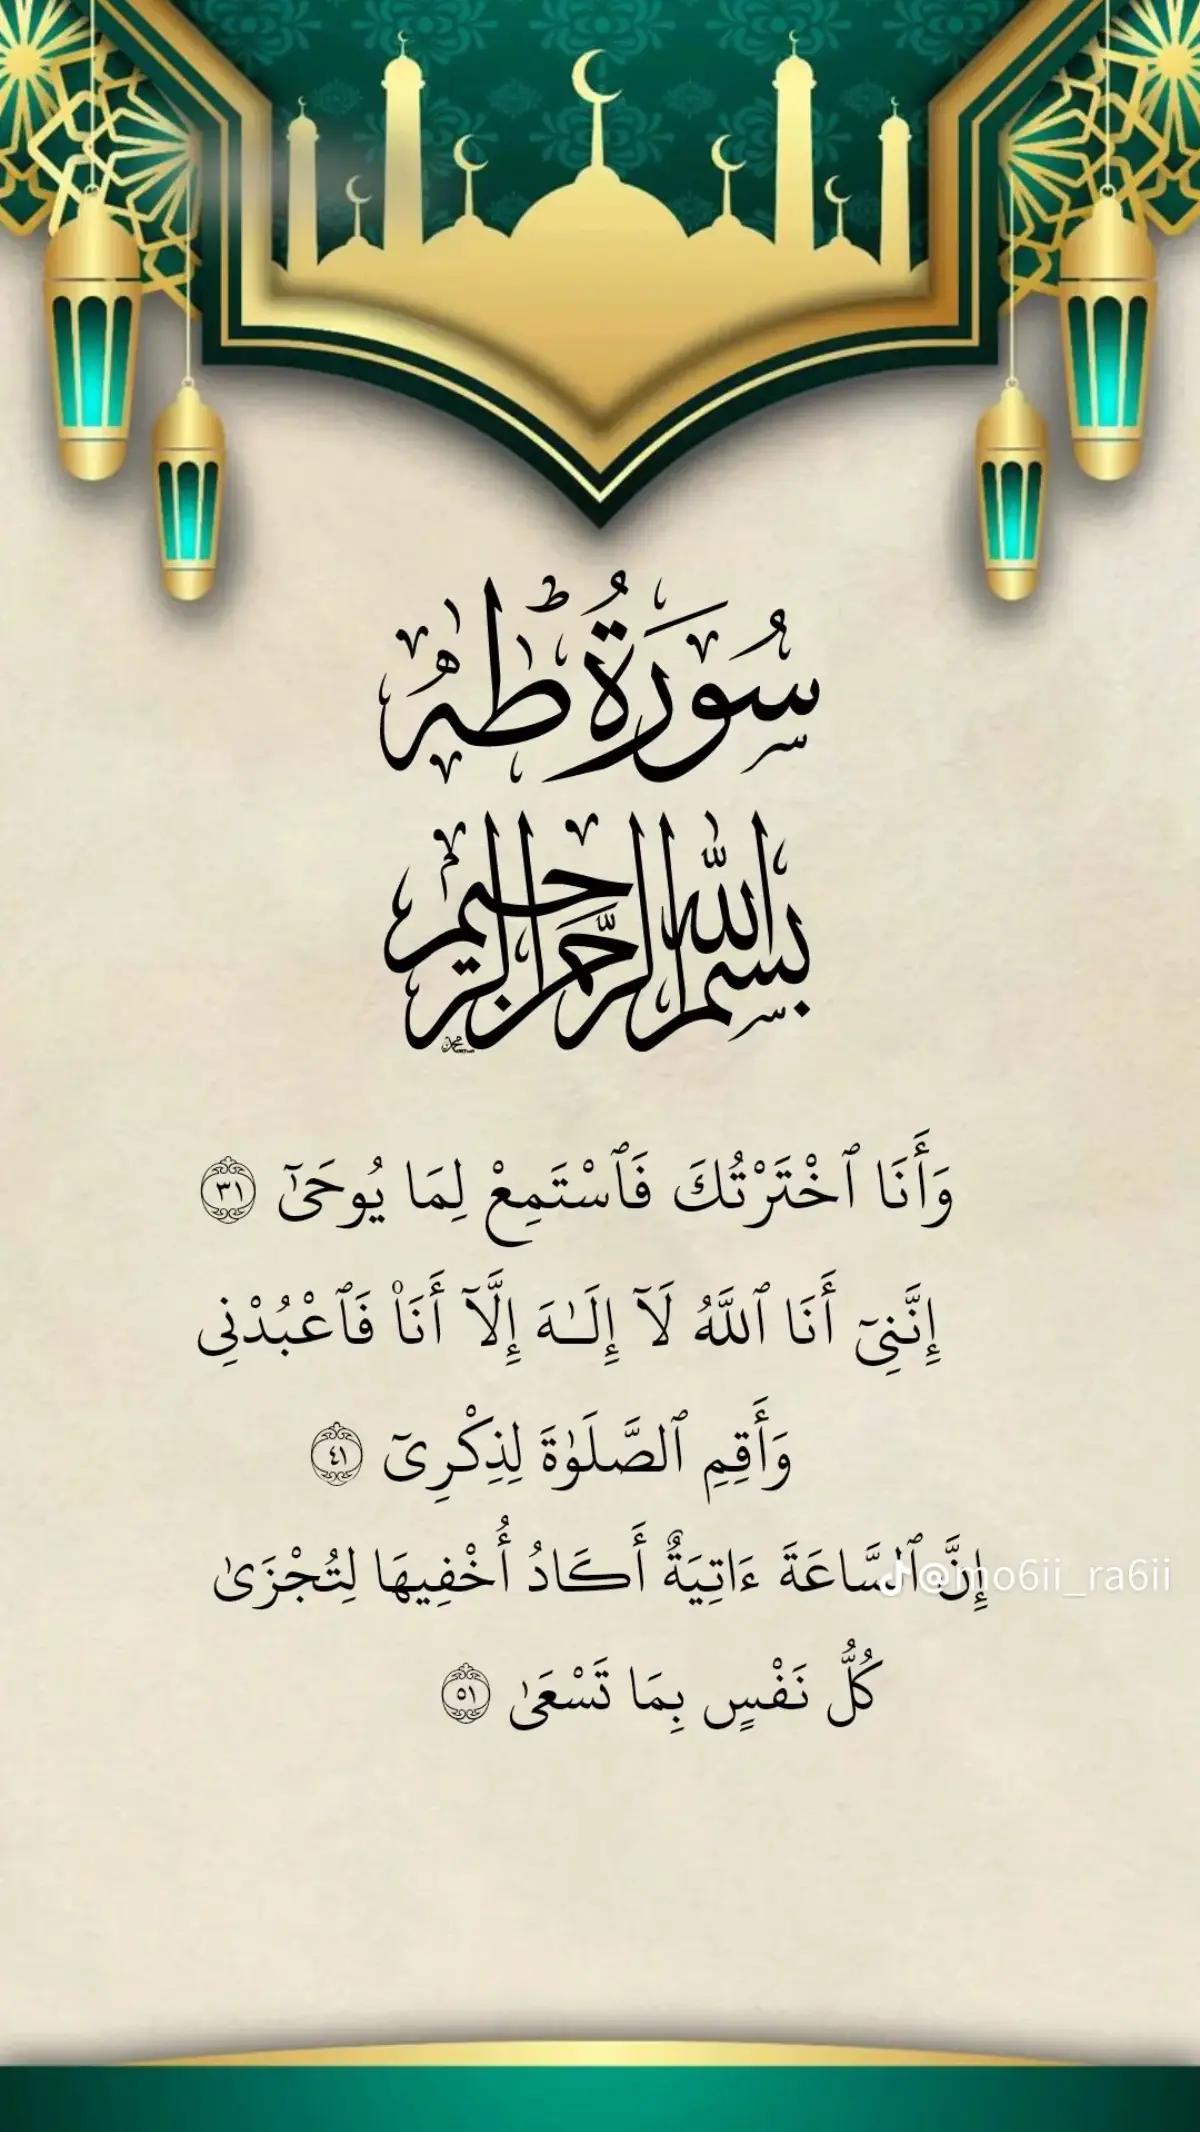 سُورَةُ طٰهٰ
بسم الله الرحمن الرحيم
وَأَنَا ٱخْتَرْتُكَ فَٱسْتَمِعْ لِمَا يُوحَىٰٓ ٣١
إِنَّنِىٓ أَنَا ٱللَّهُ لَآ إِلَـٰهَ إِلَّآ أَنَا۠ فَٱعْبُدْنِى
وَأَقِمِ ٱلصَّلَوٰةَ لِذِكْرِىٓ ٤١
إِنَّ ٱلسَّاعَةَ ءَاتِيَةٌ أَكَادُ أُخْفِيهَا لِتُجْزَىٰ
@mo6ii_ra6ii
كُلُّ نَفْسٍۭ بِمَا تَسْعَىٰ ٥١